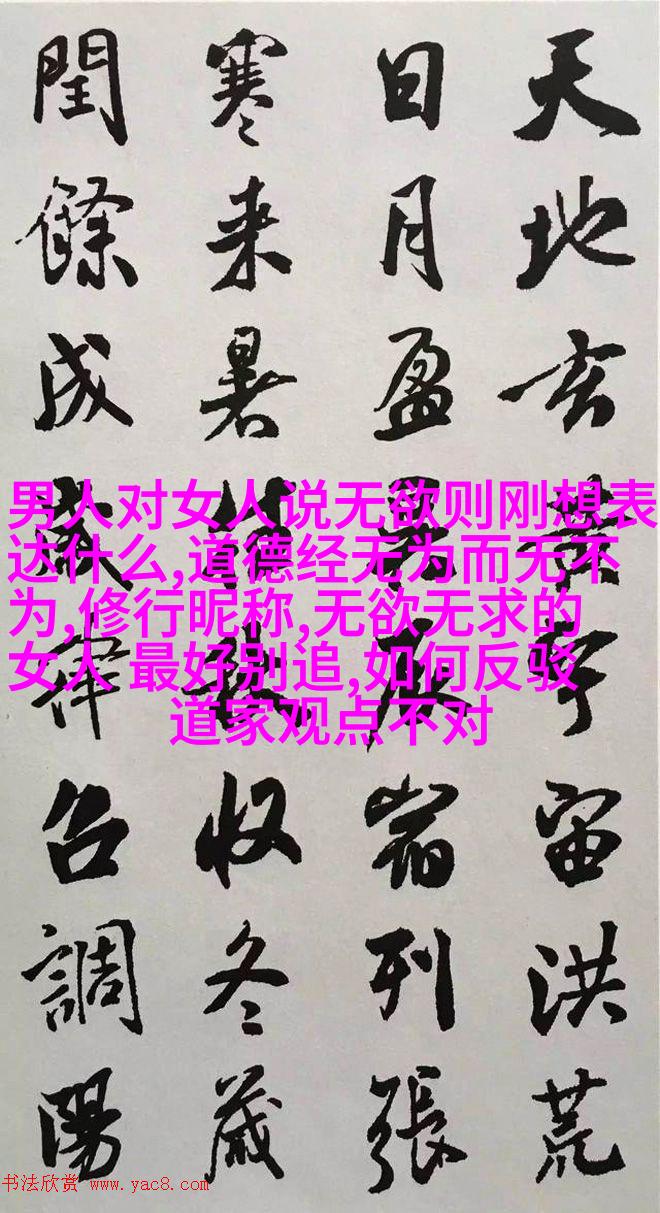 天地玄黄宇宙洪荒
日月盈昃辰宿列張
寒来暑往秋收冬蔵
閏餘成歲律吕調陽
男人对女人说无欲则刚想表
达什么,道德经无为而无不
为,修行昵称,无欲无求的
女人 最好别追,如何反驳
道家观点不对
书法欣赏 www.yac8.com